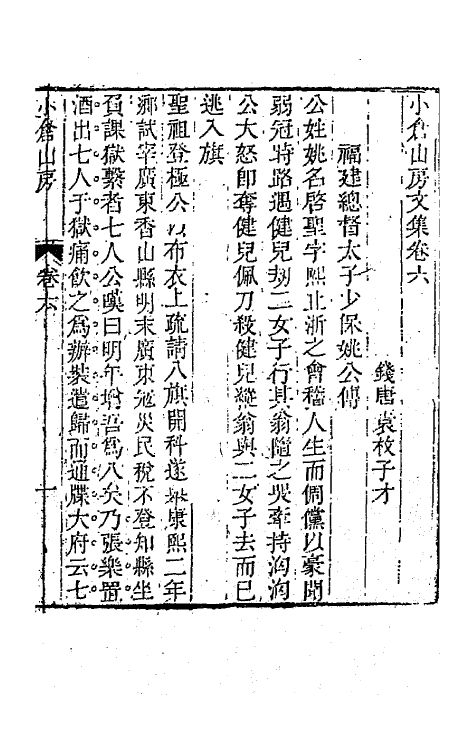 小倉山房文集卷六
錢唐袁枚子才
福建總督太子少保姚公傳
公姓姚名啓聖字熙止浙之會稽人生而倜儻以豪聞
弱冠時路遇健兒刼二女子行其翁隨之哭牽持洶洶
公大怒即奪健兒佩刀殺健兒縱翁與二女子去而已
逃入旗
聖祖登極公以布衣上疏請八旗開科遂舉康熙二年
鄉試宰廣東香山縣明末廣東寇災民稅不登知縣坐
負課獄繫者七人公嘆曰明年增吾爲八矣乃張樂置
酒出七人于獄痛飲之爲辦裝遣歸而通牒大府云七
小倉山房
卷六
一